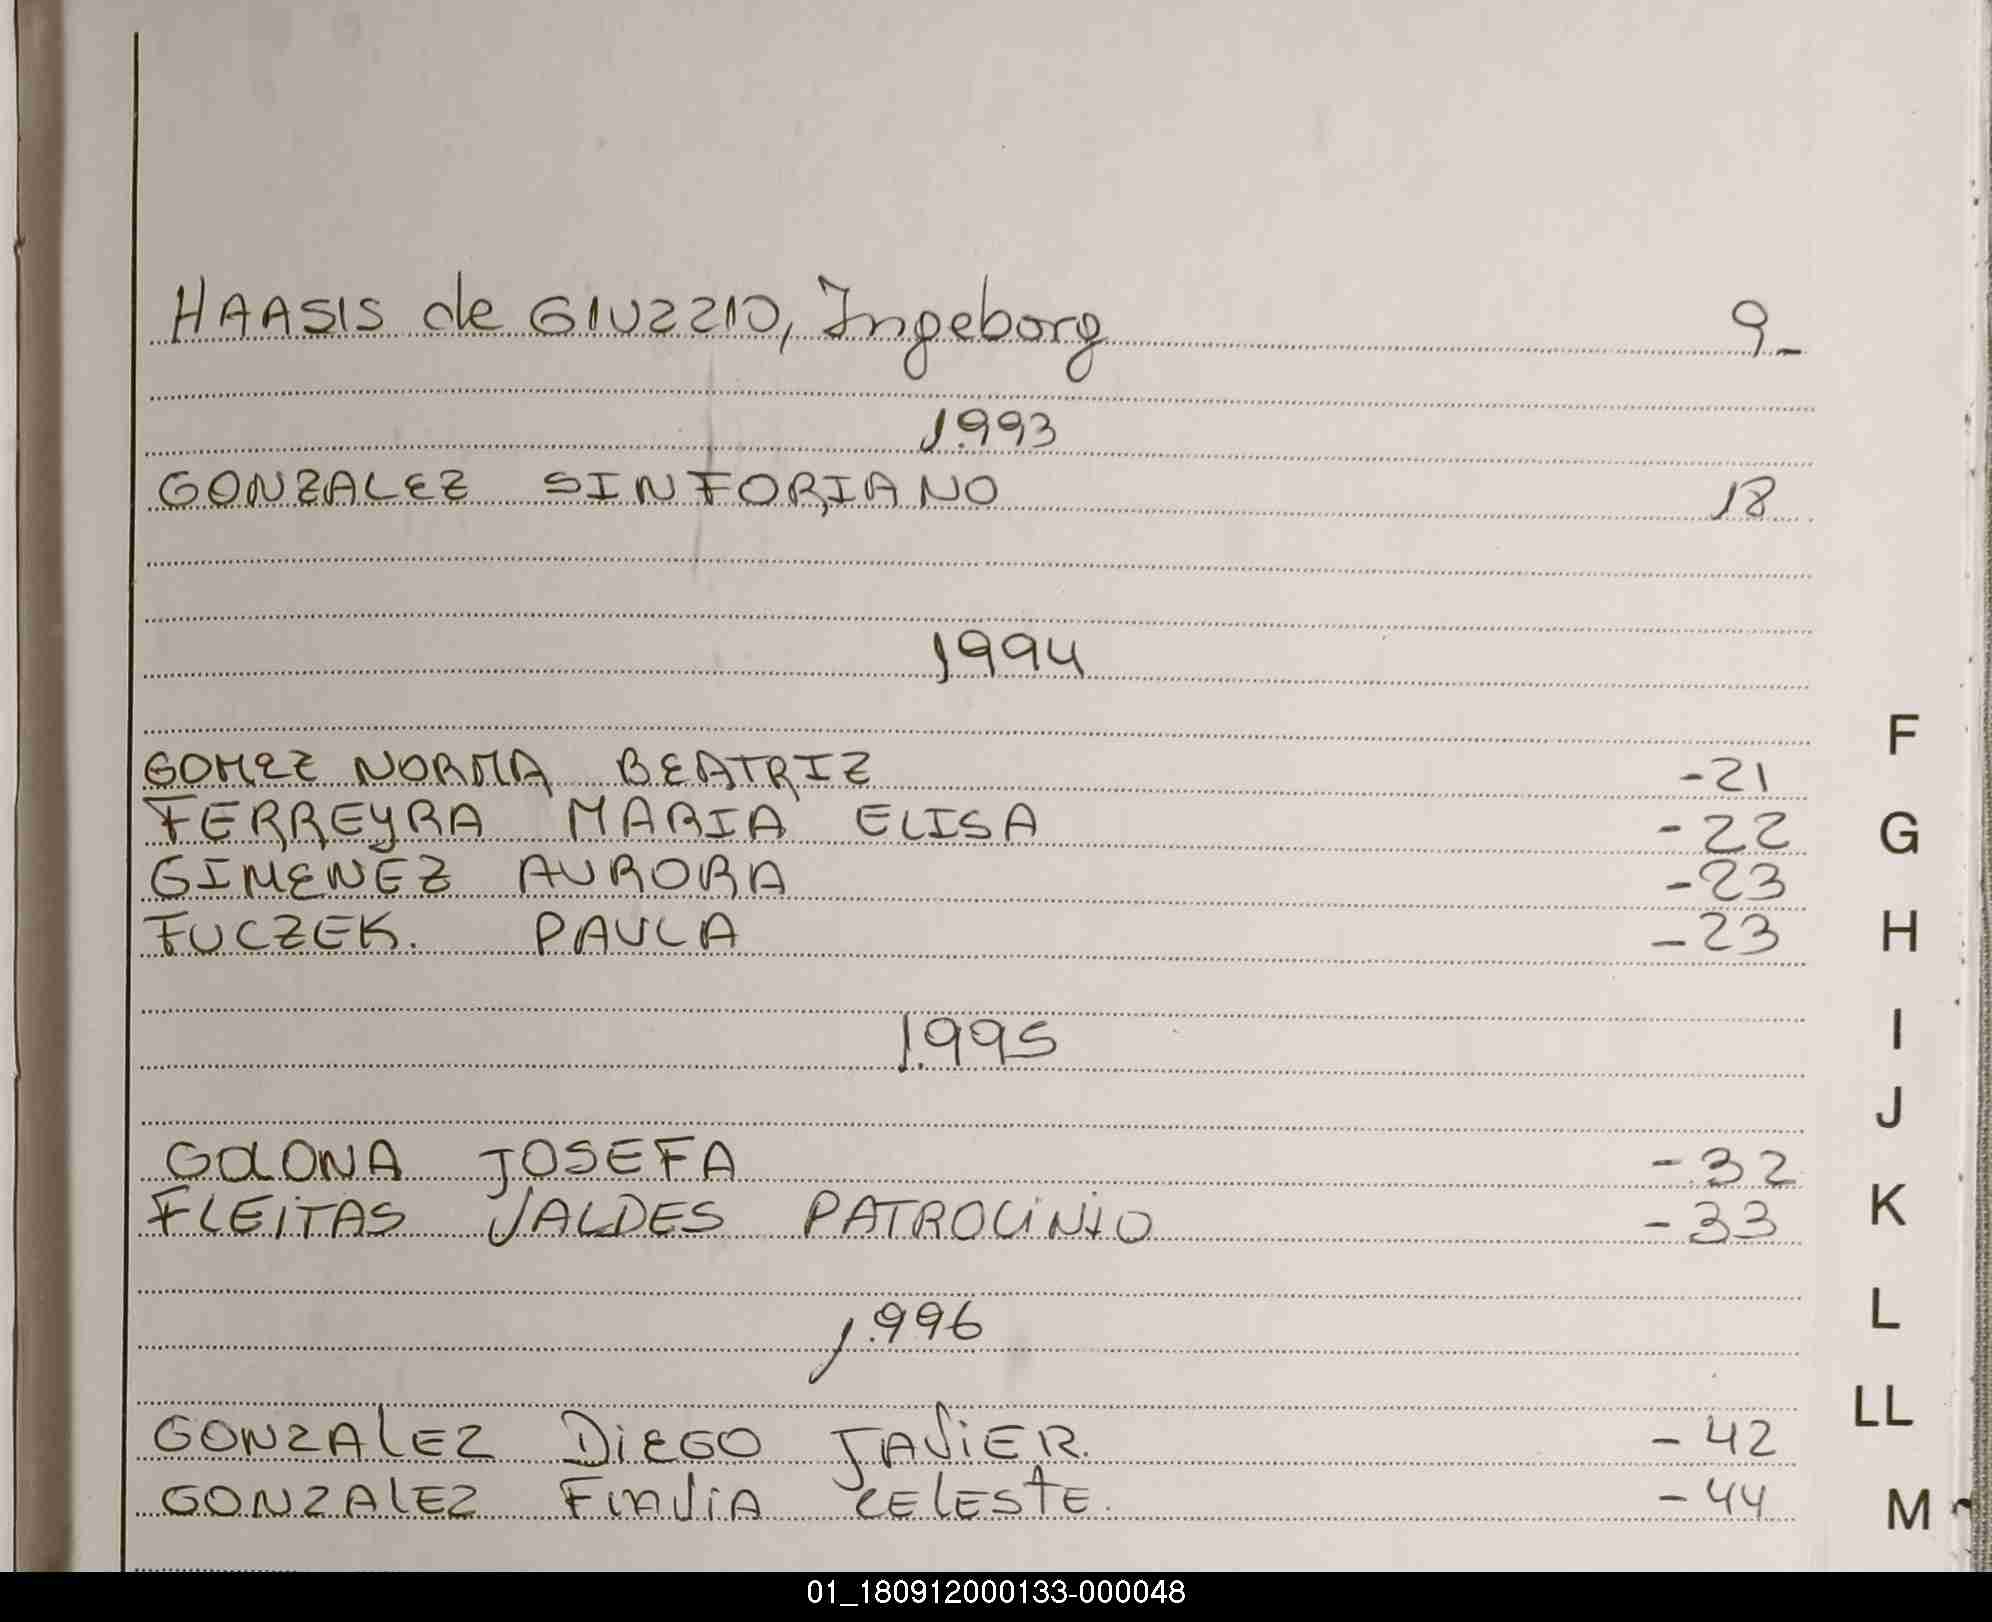 HAASIS de GIUZZIO, Ingeborg 9-
1.993
GONZALEZ SINFORIANO 18
1994
GOMEZ NORMA BEATRIZ -21
FERREYRA MARIA ELISA -22
GIMENEZ AURORA -23
FUCZEK. PAULA -23
1.995
GOLONA JOSEFA -32
FLEITAS VALDES PATROCINIO -33
1.996
GONZALEZ DIEGO JAVIER. -42
GONZALEZ FLAVIA CELESTE. -44
F
G
H
I
J
K
L
LL
M
01_180912000133-000048